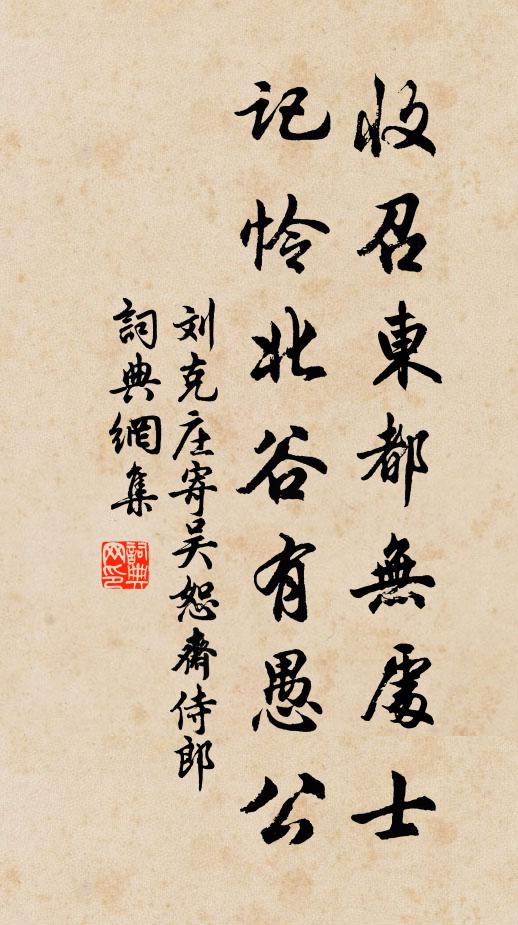 收召東都無處士
記怜北谷有愚公
刘克庄寄吴恕齋侍郎
詞典網集
詞典网印